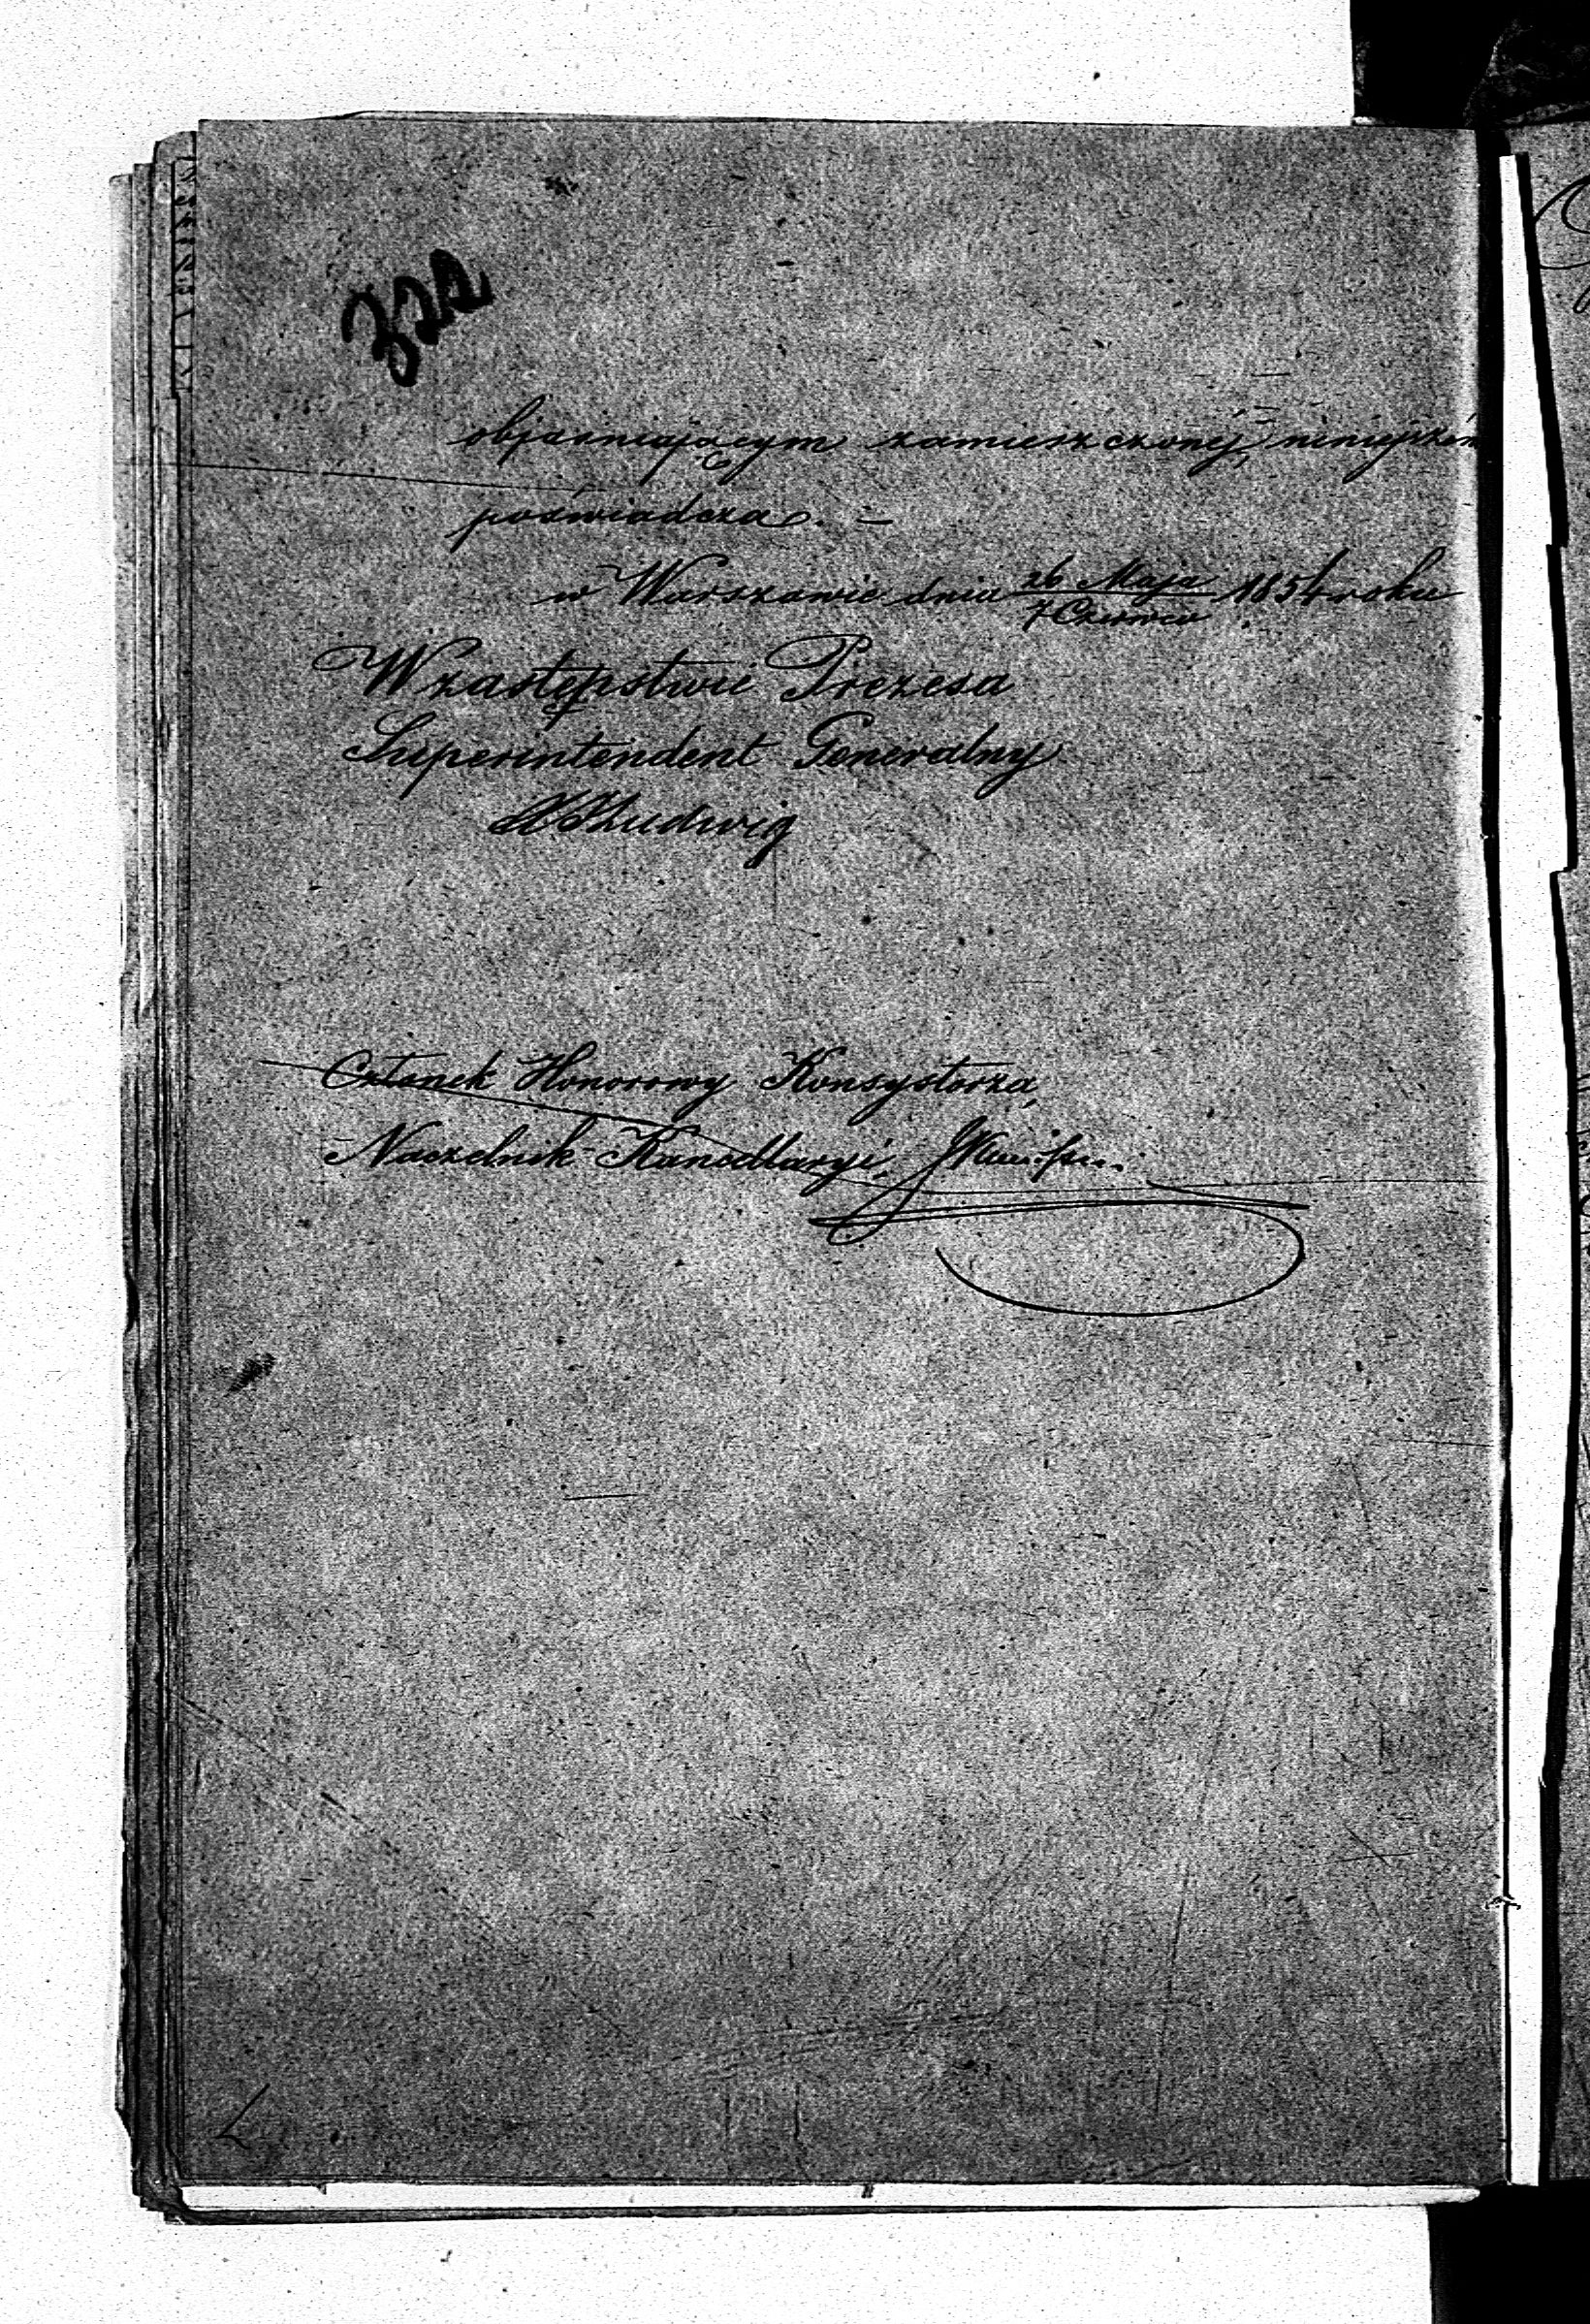 objasniającym zamieszczonej, niniejszem
poświadcza. –
w Warszawie dnia 26 Maja / 7 Czerwca 1854 roku
W zastępstwie Prezesa
Superintendent Generalny
Ludwig
Członek Honorowy Konsystorza,
Naczelnik Kancellaryi,